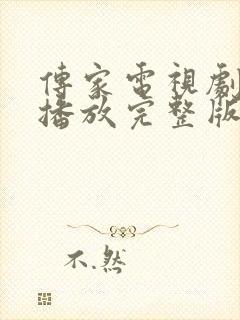 傳家電視劇
播放完整版
不.然